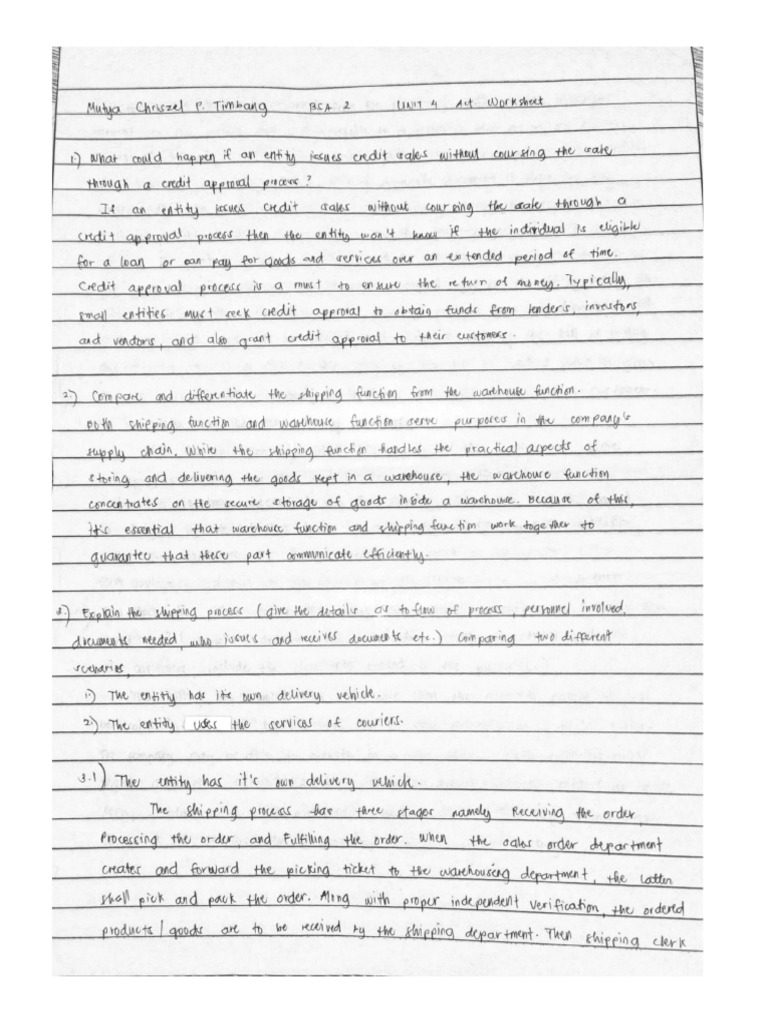 Mutya Chriszel P. Timbang BSA 2 UNIT 4 Act Worksheet
1.) What could happen if an entity issues credit sales without coursing the sale
through a credit approval process?
If an entity issues credit sales without coursing the sale through a
credit approval process then the entity won't know if the individual is eligible
for a loan or can pay for goods and services over an extended period of time.
Credit approval process is a must to ensure the return of money. Typically,
small entities must seek credit approval to obtain funds from lenders, investors,
and vendors, and also grant credit approval to their customers.
2.) Compare and differentiate the shipping function from the warehouse function.
Both shipping function and warehouse function serve purposes in the company's
supply chain. While the shipping function handles the practical aspects of
storing and delivering the goods kept in a warehouse, the warehouse function
concentrates on the secure storage of goods inside a warehouse. Because of this,
it's essential that warehouse function and shipping function work together to
guarantee that these part communicate efficiently.
3.) Explain the shipping process (give the details as to flow of process, personnel involved,
documents needed, who issues and receives documents etc.) Comparing two different
scenarios,
1.) The entity has its own delivery vehicle.
2.) The entity uses the services of couriers.
3.1) The entity has it's own delivery vehicle.
The shipping process has three stages namely Receiving the order,
Processing the order, and Fulfilling the order. When the sales order department
creates and forward the picking ticket to the warehousing department, the latter
shall pick and pack the order. Along with proper independent verification, the ordered
products/goods are to be received by the shipping department. Then shipping clerk